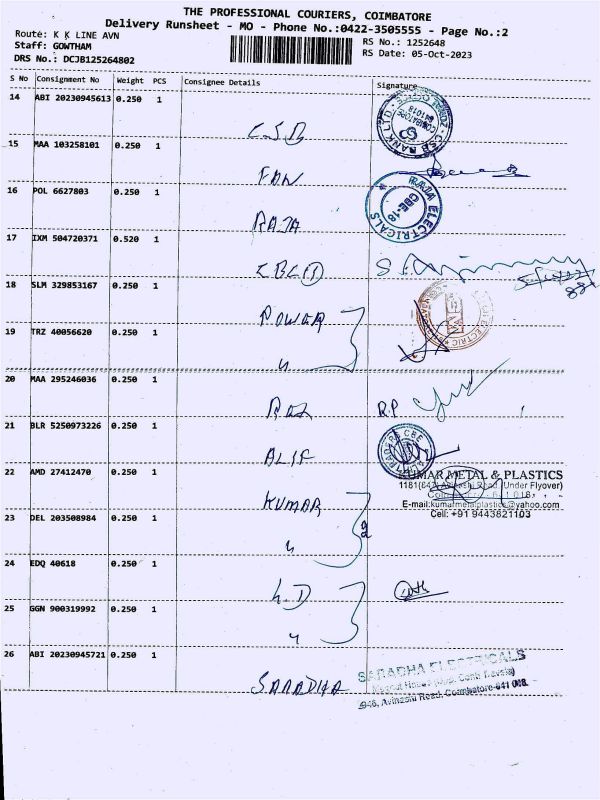 THE PROFESSIONAL COURIERS, COIMBATORE
Delivery Runsheet - MO - Phone No.:0422-3505555 - Page No.:2
Route: K K LINE AVN
Staff: GOWTHAM
DRS No.: DCJB125264802
RS No.: 1252648
RS Date: 05-Oct-2023
S No Consignment No Weight PCS Consignee Details Signature
14 ABI 20230945613 0.250 1 CSB
CSB BANK LTD
COIMBATORE
641018
15 MAA 103258101 0.250 1
16 POL 6627803 0.250 1 RAJA
RAJA ELECTRICALS
CBE-18
17 IXM 504720371 0.520 1
18 SLM 329853167 0.250 1 POWER
19 TRZ 40056620 0.250 1 "
20 MAA 295246036 0.250 1 R.P
21 BLR 5250973226 0.250 1 ALIF
22 AMD 27412470 0.250 1 KUMAR
KUMAR METAL & PLASTICS
1181(641) Avinashi Road (Under Flyover)
E-mail:kumarmetalplastics@yahoo.com
Cell: +91 9443821103
23 DEL 203508984 0.250 1 " 2
24 EDQ 40618 0.250 1
25 GGN 900319992 0.250 1 "
26 ABI 20230945721 0.250 1 SARADHA
SARADHA ELECTRICALS
946, Avinashi Road, Coimbatore-641 018.